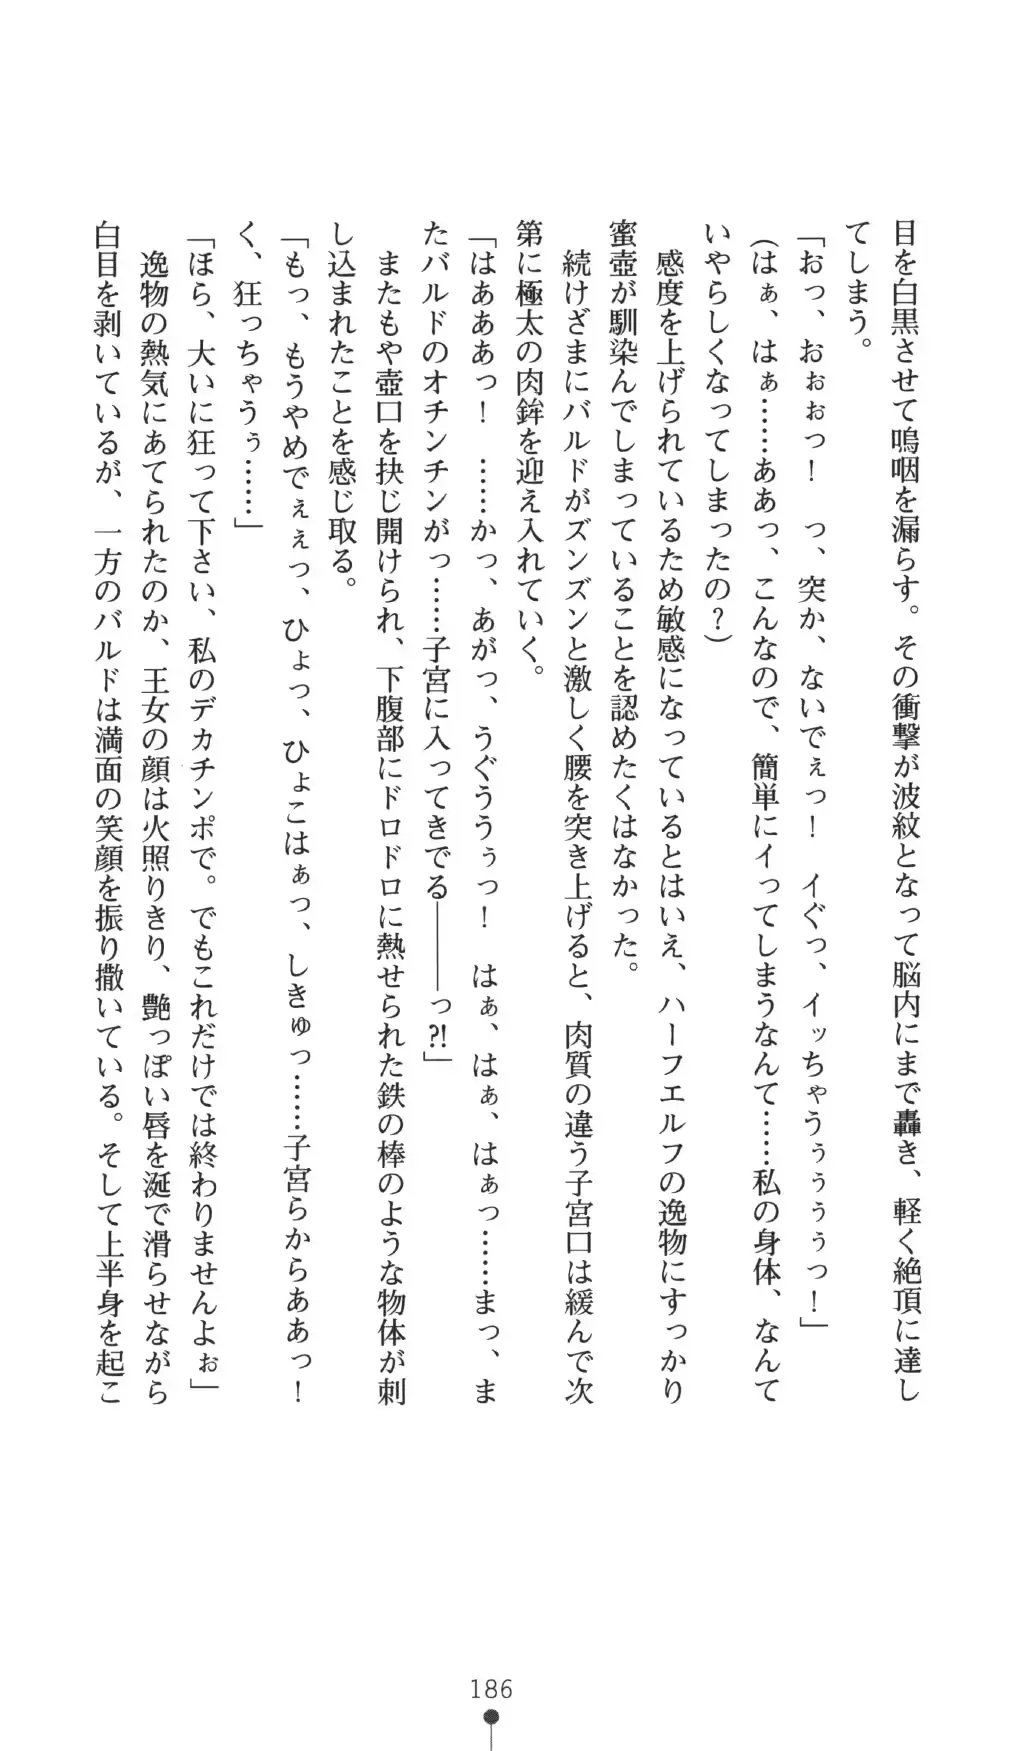 目を白黒させて嗚咽を漏らす。その衝撃が波紋となって脳内にまで轟き、軽く絶頂に達し
てしまう。
「おっ、おぉぉっ！　っ、突か、ないでぇっ！　イぐっ、イッちゃうぅぅぅぅっ！」
（はぁ、はぁ……ああっ、こんなので、簡単にイってしまうなんて……私の身体、なんて
いやらしくなってしまったの？）
　感度を上げられているため敏感になっているとはいえ、ハーフエルフの逸物にすっかり
蜜壺が馴染んでしまっていることを認めたくはなかった。
　続けざまにバルドがズンズンと激しく腰を突き上げると、肉質の違う子宮口は緩んで次
第に極太の肉鉾を迎え入れていく。
「はあああっ！　……かっ、あがっ、うぐううぅっ！　はぁ、はぁ、はぁっ……まっ、ま
たバルドのオチンチンがっ……子宮に入ってきでる――っ⁈」
　またもや壺口を抉じ開けられ、下腹部にドロドロに熱せられた鉄の棒のような物体が刺
し込まれたことを感じ取る。
「もっ、もうやめでぇぇっ、ひょっ、ひょこはぁっ、しきゅっ……子宮らからああっ！
く、狂っちゃうぅ……」
「ほら、大いに狂って下さい、私のデカチンポで。でもこれだけでは終わりませんよぉ」
　逸物の熱気にあてられたのか、王女の顔は火照りきり、艶っぽい唇を涎で滑らせながら
白目を剥いているが、一方のバルドは満面の笑顔を振り撒いている。そして上半身を起こ
186